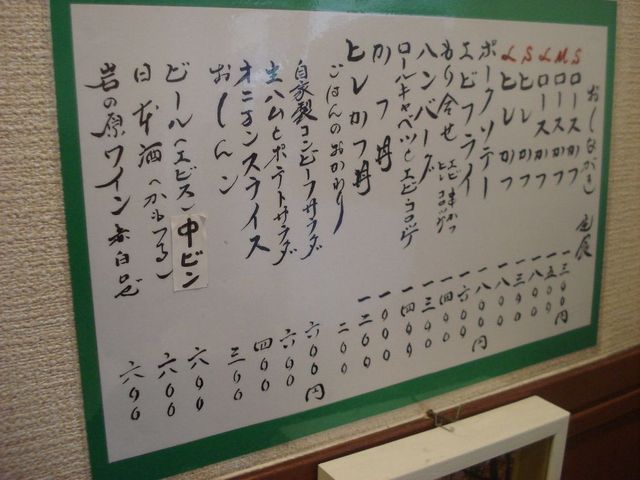 おしながき 定食
S ロースかつ 一三〇〇円
M ロースかつ 一五〇〇
L ロースかつ 一八〇〇
S ヒレかつ 一三〇〇
L ヒレかつ 一八〇〇
ポークソテー 一八〇〇円
エビフライ 一六〇〇
もり合せ エビ 串かつ ヒレ コロッケ 一四〇〇
ハンバーグ 一三〇〇
ロールキャベツとエビコロッケ 一四〇〇
かつ丼 一〇〇〇
ヒレかつ丼 一二〇〇
ごはんのおかわり 二〇〇
自家製コンビーフサラダ 六〇〇円
生ハムとポテトサラダ 六〇〇
オニオンスライス 四〇〇
おしんこ 三〇〇
ビール(エビス)中ビン 六〇〇
日本酒 六〇〇
岩の原ワイン 赤白ロゼ 六〇〇